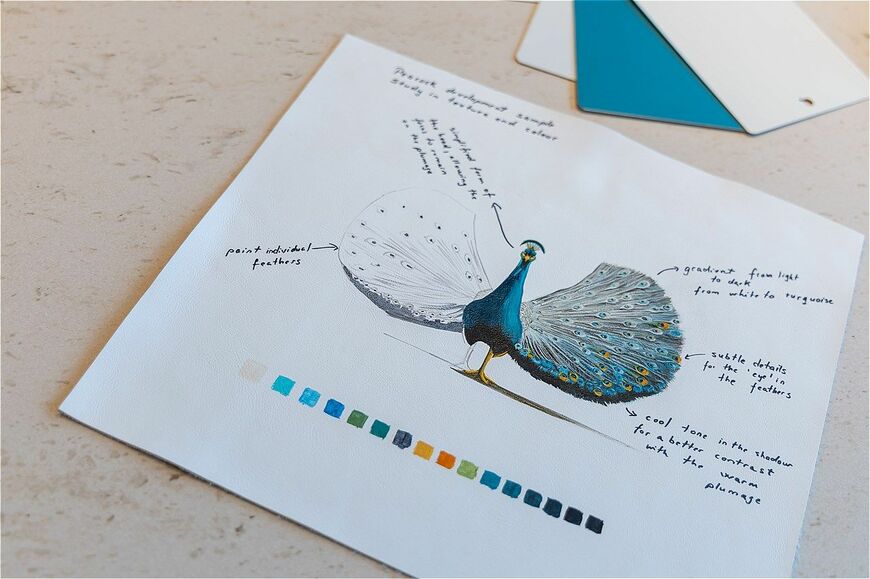 Peacock development sample
study in texture and colour
simplified form of
the head, allowing the
focus to remain
on the plumage
paint individual
feathers
gradient from light
to dark
from white to turquoise
subtle details
for the 'eye' in
the feathers
cool tone in the shadow
for a better contrast
with the warm
plumage